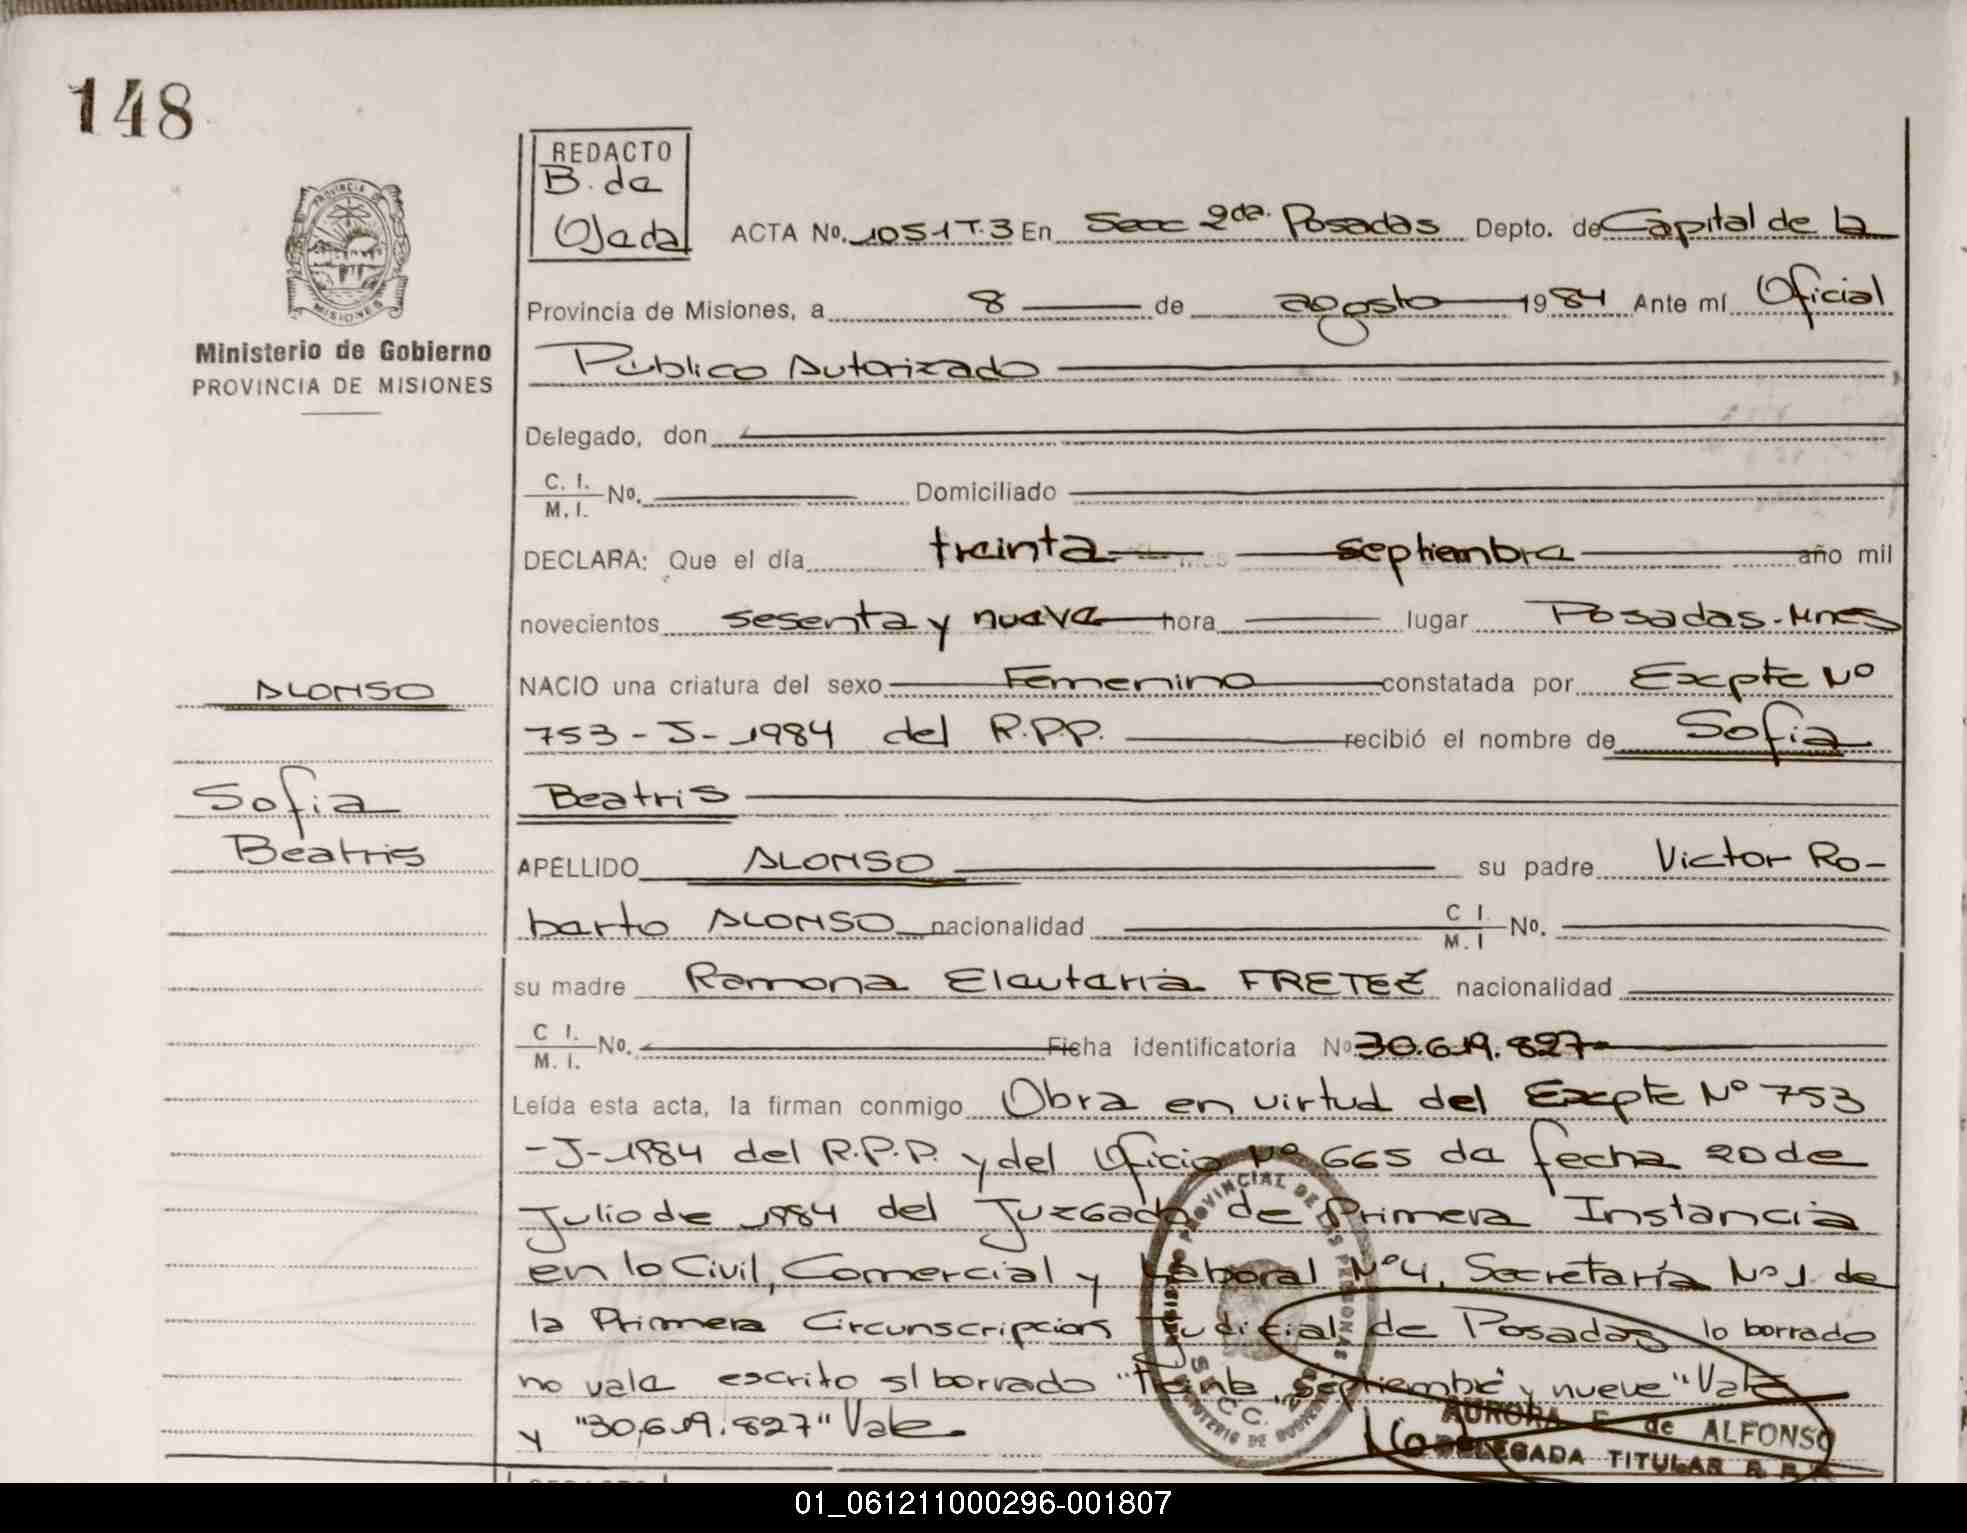 148
REDACTO
B. de
Ojeda
ACTA No. 1051 T. 3 En Secc 2da. Posadas Depto. de Capital de la
PROVINCIA DE
MISIONES
Provincia de Misiones, a 8 de agosto 1984 Ante mí Oficial
Ministerio de Gobierno
PROVINCIA DE MISIONES
Público Autorizado
Delegado, don
C. I.
M. I. No. Domiciliado
DECLARA: Que el día treinta septiembre año mil
novecientos sesenta y nueve hora lugar Posadas-Mnes
ALONSO
NACIO una criatura del sexo Femenino constatada por Expte Nº
753-J-1984 del R.P.P. recibió el nombre de Sofia
Sofia
Beatris
Beatris
APELLIDO ALONSO su padre Victor Ro-
berto ALONSO nacionalidad C I. M. I No.
su madre Ramona Eleuteria FRETEZ nacionalidad
C I.
M. I. No. Ficha identificatoria Nº 30.619.827
Leída esta acta, la firman conmigo Obra en virtud del Expte Nº 753
-J-1984 del R.P.P. y del Oficio Nº 665 de fecha 20 de
Julio de 1984 del Juzgado de Primera Instancia
en lo Civil, Comercial y Laboral Nº 4, Secretaría Nº 1 de
la Primera Circunscripcion Judicial de Posadas lo borrado
no vale escrito s/ borrado "treinta, Septiembre y nueve" Vale
y "30.619.827" Vale.
AURORA E. de ALFONSO
DELEGADA TITULAR R. P. P.
REDACTO
01_061211000296-001807